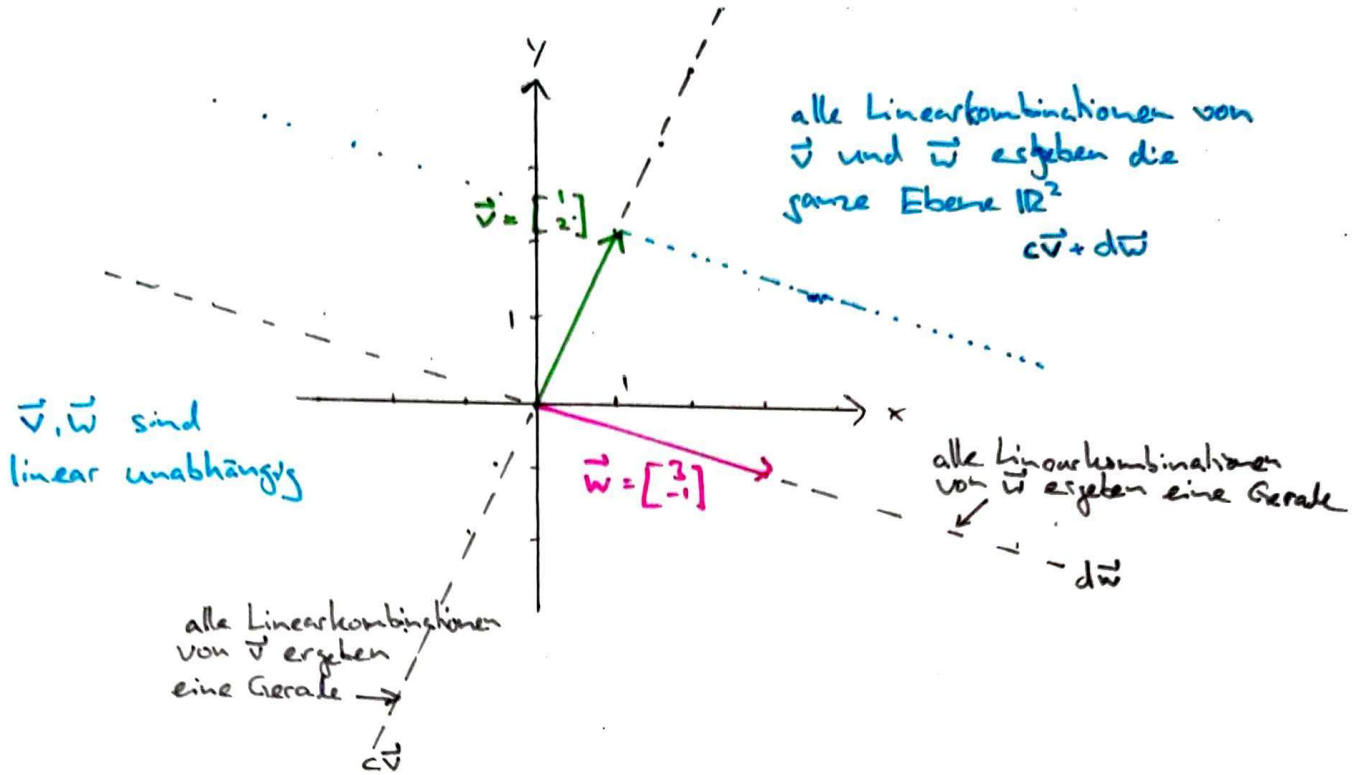 y
alle Linearkombinationen von
v⃗ und w⃗ ergeben die
ganze Ebene ℝ²
cv⃗ + dw⃗
v⃗ = [1 2]
1
1
x
v⃗, w⃗ sind
linear unabhängig
w⃗ = [3 -1]
alle Linearkombinationen
von w⃗ ergeben eine Gerade
dw⃗
alle Linearkombinationen
von v⃗ ergeben
eine Gerade
cv⃗